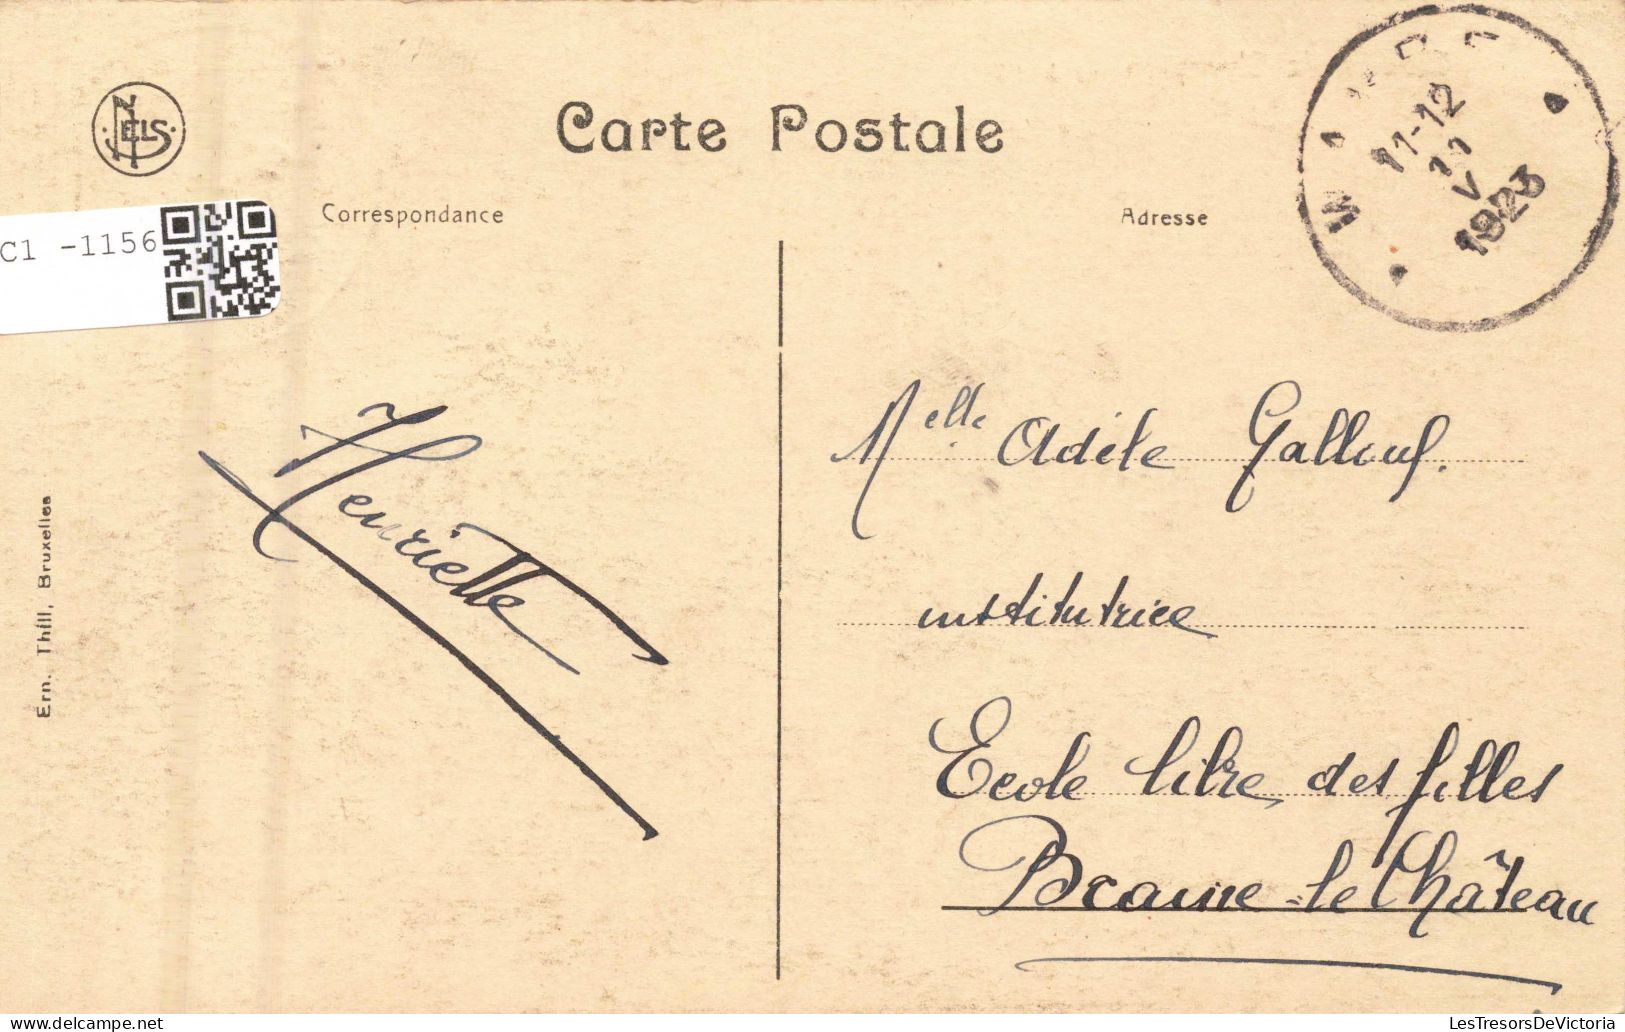 NELS
Carte Postale
WAVRE
11-12
11
V
1923
Correspondance
Adresse
C1 -1156
Henriette
Melle Adèle
institutrice
Ecole libre des filles
Braine-le-Château
Ern. Thill, Bruxelles
LesTresorsDeVictoria